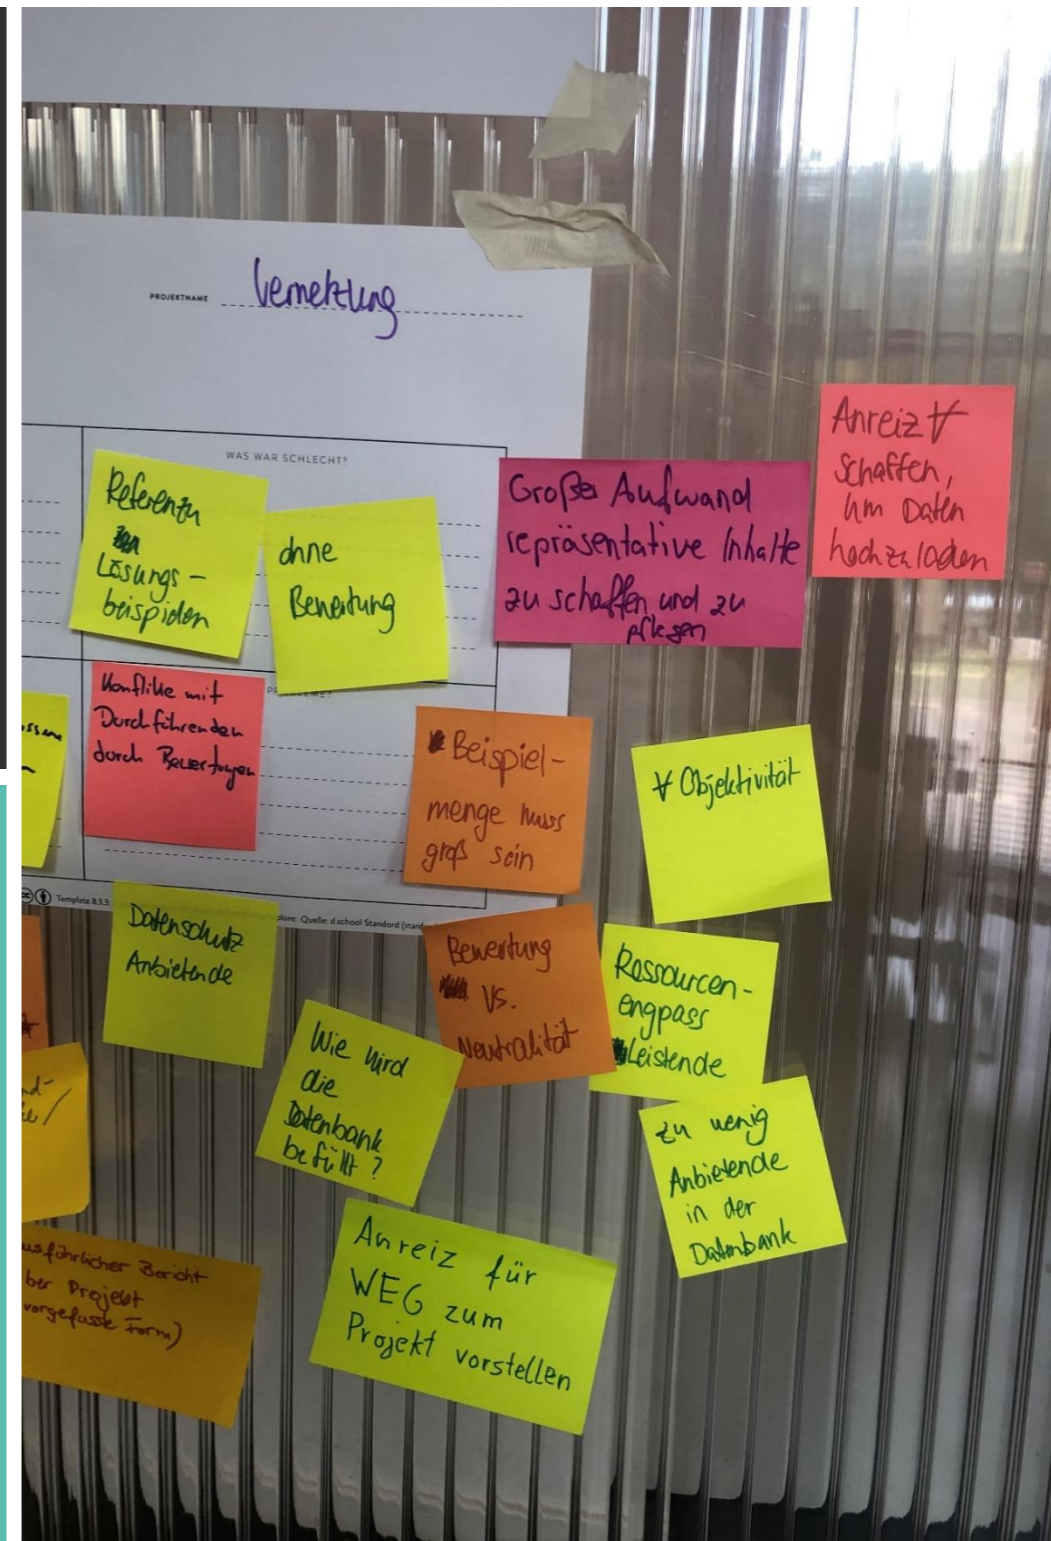 PROJEKTNAME
Vernetzung
WAS WAR SCHLECHT?
Referenzen
Lösungs-
beispielen
ohne
Bewertung
Großer Aufwand
repräsentative Inhalte
zu schaffen und zu
pflegen
Anreiz ∀
schaffen,
um Daten
hochzuladen
Konflike mit
Durchführenden
durch Bewertungen
Beispiel-
menge muss
groß sein
∀ Objektivität
Template 8.3.3:
plore: Quelle: d.school Standard (stanf
Datenschutz
Anbietende
Bewertung
vs.
Neutralität
Ressourcen-
engpass
Leistende
Wie wird
die
Datenbank
befüllt?
zu wenig
Anbietende
in der
Datenbank
usführlicher Bericht
ber Projekt
vorgefasste Form)
Anreiz für
WEG zum
Projekt vorstellen